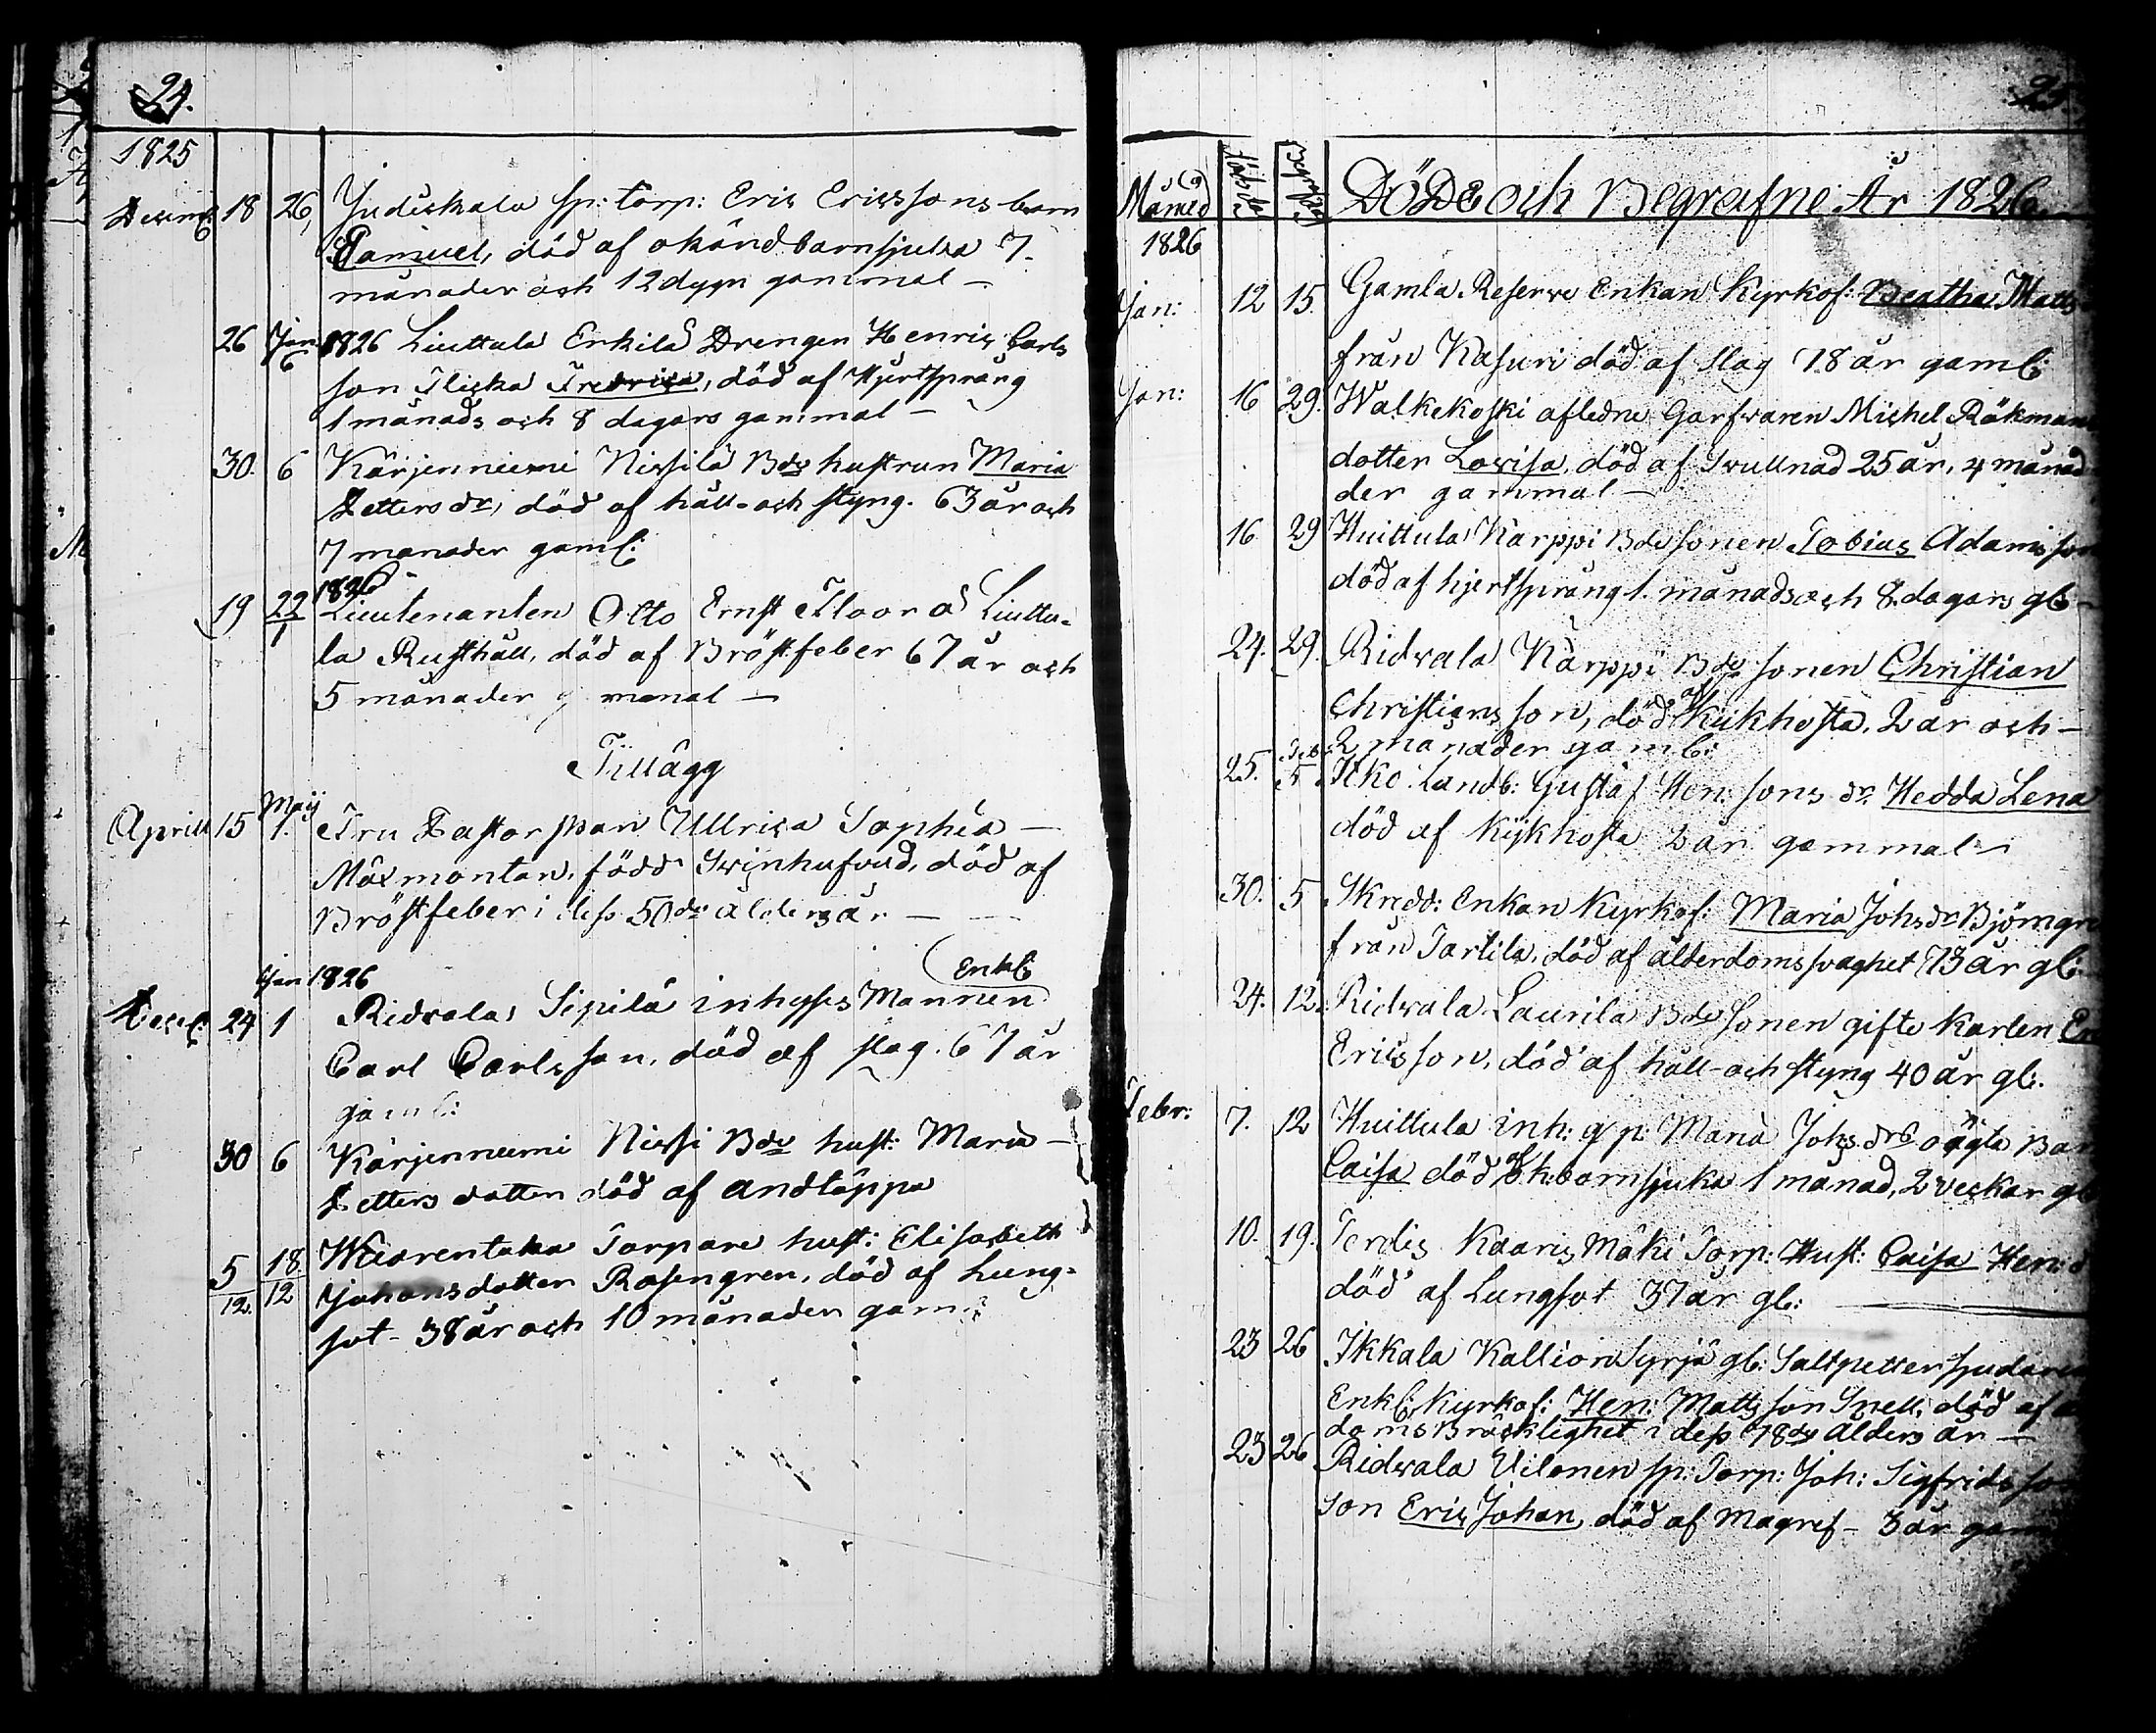 24.
1825
Decemb 18 26, Judickala sp: torp: Eric Ericssons barn
Samuel, död af okänd barnsjuka 7.
månader och 12 dygn gammal —
26 Jan 6 1826 Liuttula Erkilä Drengen Henric Carls
son Flicka Fredrica, död af Hjertsprång
1 månads och 8 dagars gammal —
30. 6 Kärjenniemi Nissilä Bde hustrun Maria
Petters dr, död af håll- och styng. 63 år och
7 månader gaml:
19 22/1 1826 Lieutenanten Otto Ernst Floor å Liuttu-
la Rusthåll, död af Bröstfeber 67 år och
5 månader g manal —
Tillägg
Aprill 15 Maij 1. Fru Pastorskan Ullrica Sophia —
Maxmontan, född Swinhufvud, död af
Bröstfeber i dess 50de ålders år —
Jan 1826
Enkl:
Decef: 24 1 Ridvala, Sipilä inhyses Mannen
Carl Carlsson, död af slag. 67 år
gaml:
30 6 Kärjenniemi Nissi Bde hust: Maria —
Petters dotter död af andtäppa
5/12. 18/12 Wuorentaka Torpare hust: Elisabeth
Johansdotter Rosengren, död af Lung-
sot - 38 år och 10 månader gam:
25
Månad Döds dag Begrafne Döde och Begrafne År 1826
1826
Jan: 12 15. Gamla Reserve Enkan Kyrkof: Beatha Matts
från Kasuri död af slag 78 år gaml:
Jan: 16 29. Walkekoski afledne Garfvaren Michel Rökman
dotter Lovisa, död af Svullnad 25 år, 4 månad
der gammal —
16. 29 Huittula Karppi Bde Sonen Tobias Adamsson
död af hjertsprång 1. månads och 8. dagars gl: —
24. 29. Ridvala Kärppi Bde sonen Christian
Christiansson, död af Kikhosta, 2 år och —
2 månader gaml:
25. Feb: 5 Icko Landb: Gustaf Hen: sons dr. Hedda Lena
död af Kikhosta 2 år gammal —
30. 5 Skredd: Enkan Kyrkof: Maria Johsdr Björngre
från Tarlila, död af ålderdomssvaghet 73 år gl:
24. 12. Ridvala Laurila Bde Sonen gifte Karlen
Ericsson, död af håll- och styng 40 år gl:.
Febr: 7. 12 Huittula inh: q/p: Maria Johs drs oägta Bar
Caisa död af ok: barnsjuka 1 månad, 2 veckar gl
10. 19. Terdis Kaaris Mäki Torp: Hust: Caisa Hen: d
död af Lungsot 37 år gl:
23 26 Ikkala Kallion Syrjä gl: Saltpettersjudaren
Enkl: Kyrkof: Hen: Mattsson Snell, död af
doms Bräcklighet i dess 78de ålders år —
23 26 Ridvala Uilonen sp: Torp: Joh: Sigfridsson
son Eric Johan, död af Magref - 3 år gam